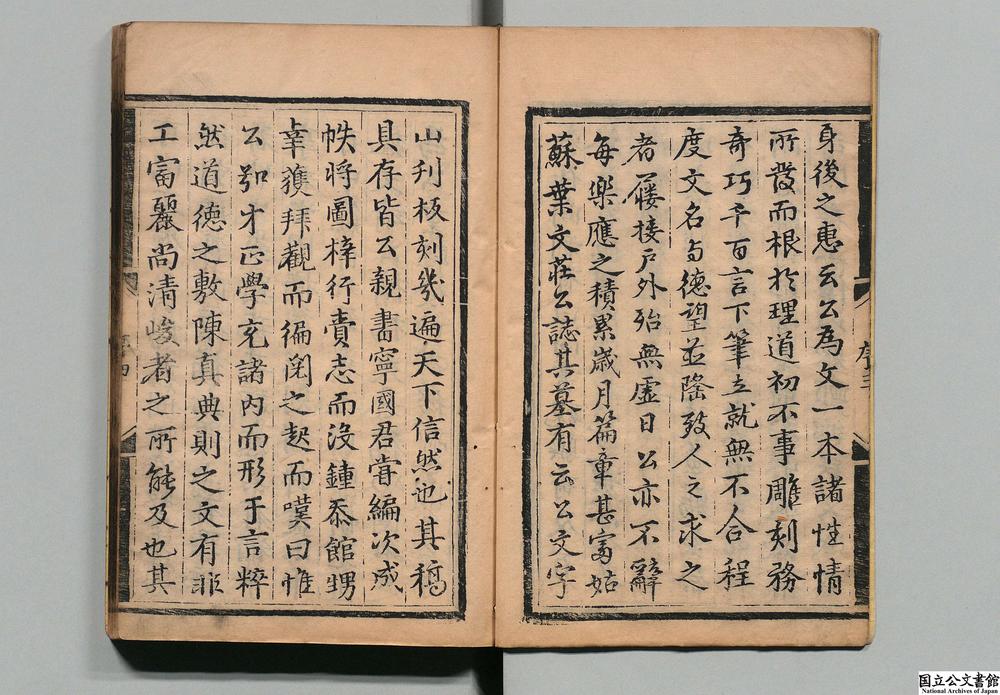 身後之惠云公為文一本諸性情
所發而根於理道初不事雕刻務
奇巧千百言下筆立就無不合程
度文名与德望並隆致人之求之
者屨接戶外殆無虛日公亦不辭
每樂應之積累歲月篇章甚富姑
蘇葉文莊公誌其墓有云公文字
山刋板刻幾遍天下信然也其稿
具存皆公親書寧國君嘗編次成
帙將圖梓行賣志而沒鍾忝館甥
幸獲拜觀而徧閱之起而嘆曰惟
公邵才正學充諸內而形于言粹
然道德之敷陳真典則之文有非
工富麗尚清峻者之所能及也其
序三
序四
国立公文書館
National Archives of Japan